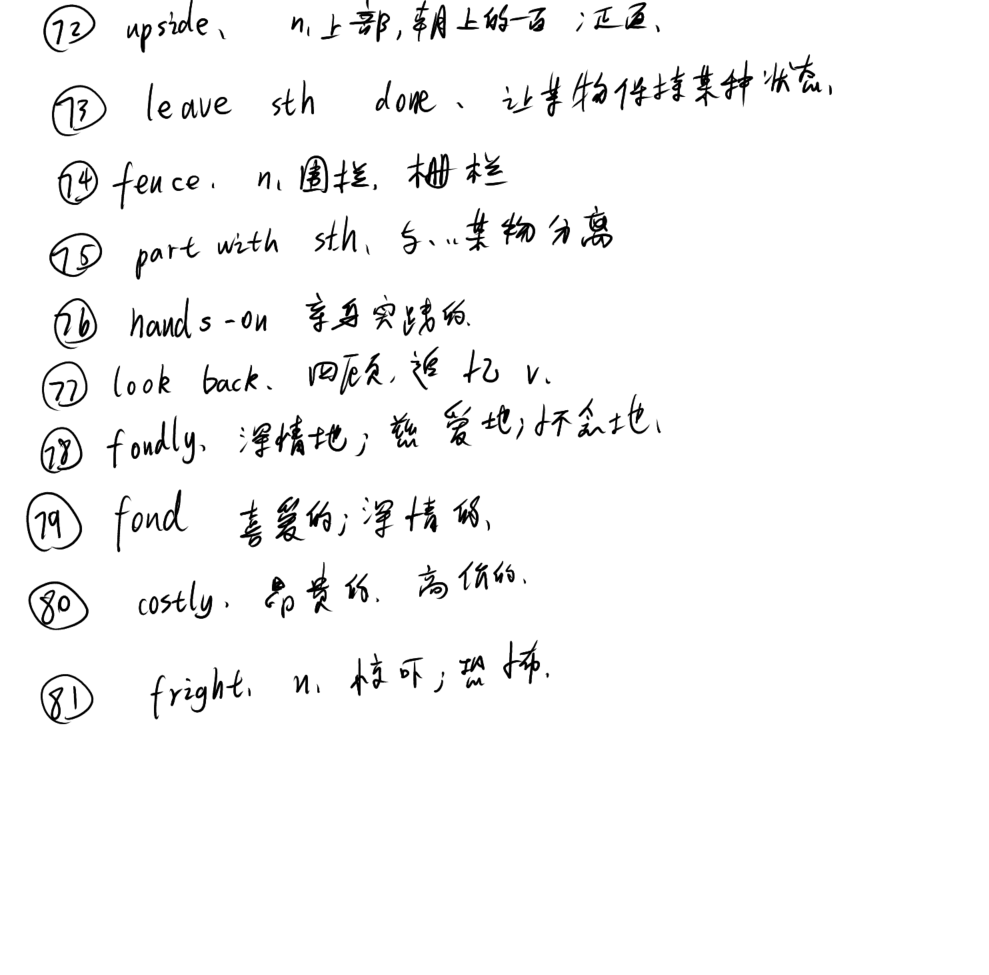 72 upside、 n、上部,朝上的一面;正面、
73 leave sth done、让某物保持某种状态、
74 fence. n、围栏、栅栏
75 part with sth、与...某物分离
76 hands-on 亲身实践的.
77 look back、回顾,追忆 v.
78 fondly、深情地;慈爱地;怀念地、
79 fond 喜爱的;深情的、
80 costly. 昂贵的. 高价的.
81 fright. n、惊吓;恐怖.